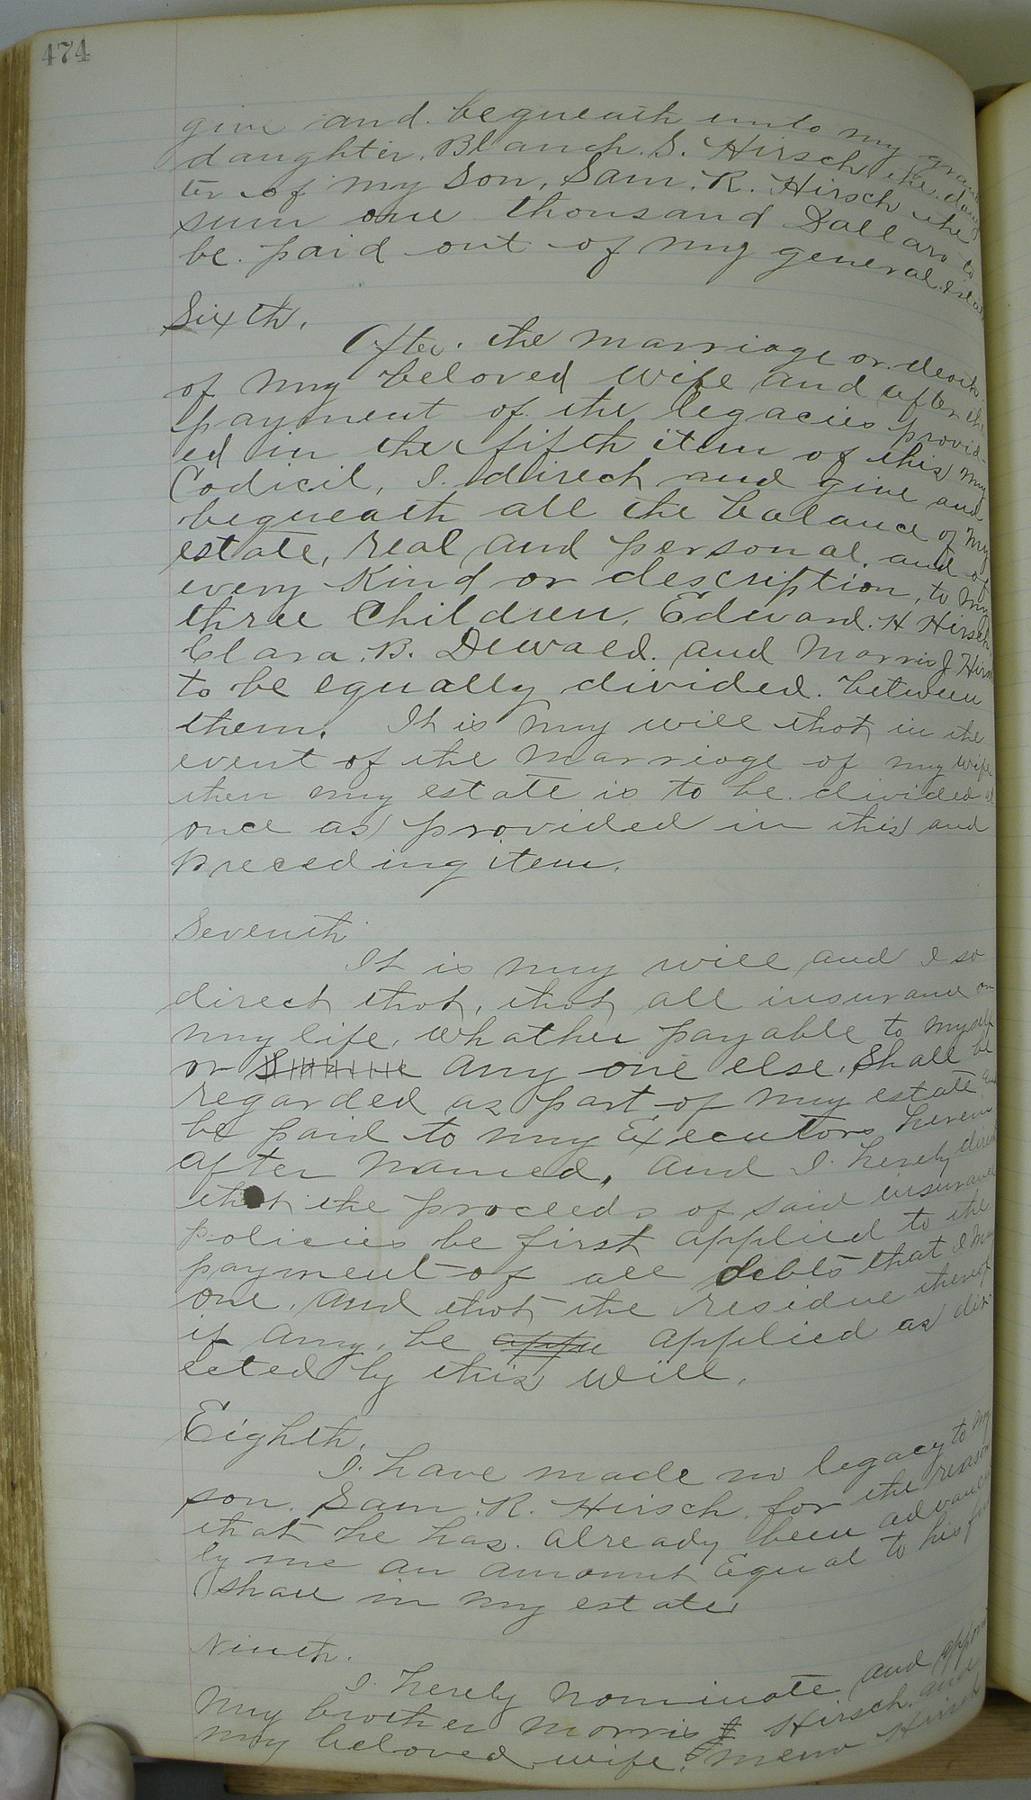 474
give and bequeath unto my grand
daughter, Blanch. S. Hirsch the daugh
ter of my Son, Sam. R. Hirsch the
sum one thousand Dollars to
be paid out of my general Estate
Sixth.
After the marriage or death
of my beloved wife and after the
payment of the legacies provid-
ed in the fifth item of this my
Codicil, I direct and give and
bequeath all the balance of my
estate, real and personal, and of
every kind or description, to my
three Children, Edward. H Hirsch
Clara. B. Dewald. and Morris J Hirsch
to be equally divided. between
them. It is my will that in the
event of the marriage of my wife
then my estate is to be divided at
once as provided in this and
preceding item.
Seventh
It is my will and I so
direct that, that all insurance on
my life, whather payable to myself
or any one else, Shall be
regarded as part of my estate and
be paid to my Executors herein
after named, and I herely direct
that the proceeds of said insurance
policies be first applied to the
payment of all debts that I may
one, and that the residue thereof
if any, be appli applied as dir
ected by this will.
Eighth.
I have made no legacy to my
son. Sam. R. Hirsch. for the reason
that he has already been advanced
by me an amount Equal to his full
share in my estate
Ninth.
I herely nominate and appoint
my brother Morris J Hirsch. and
my beloved wife, Hirsch